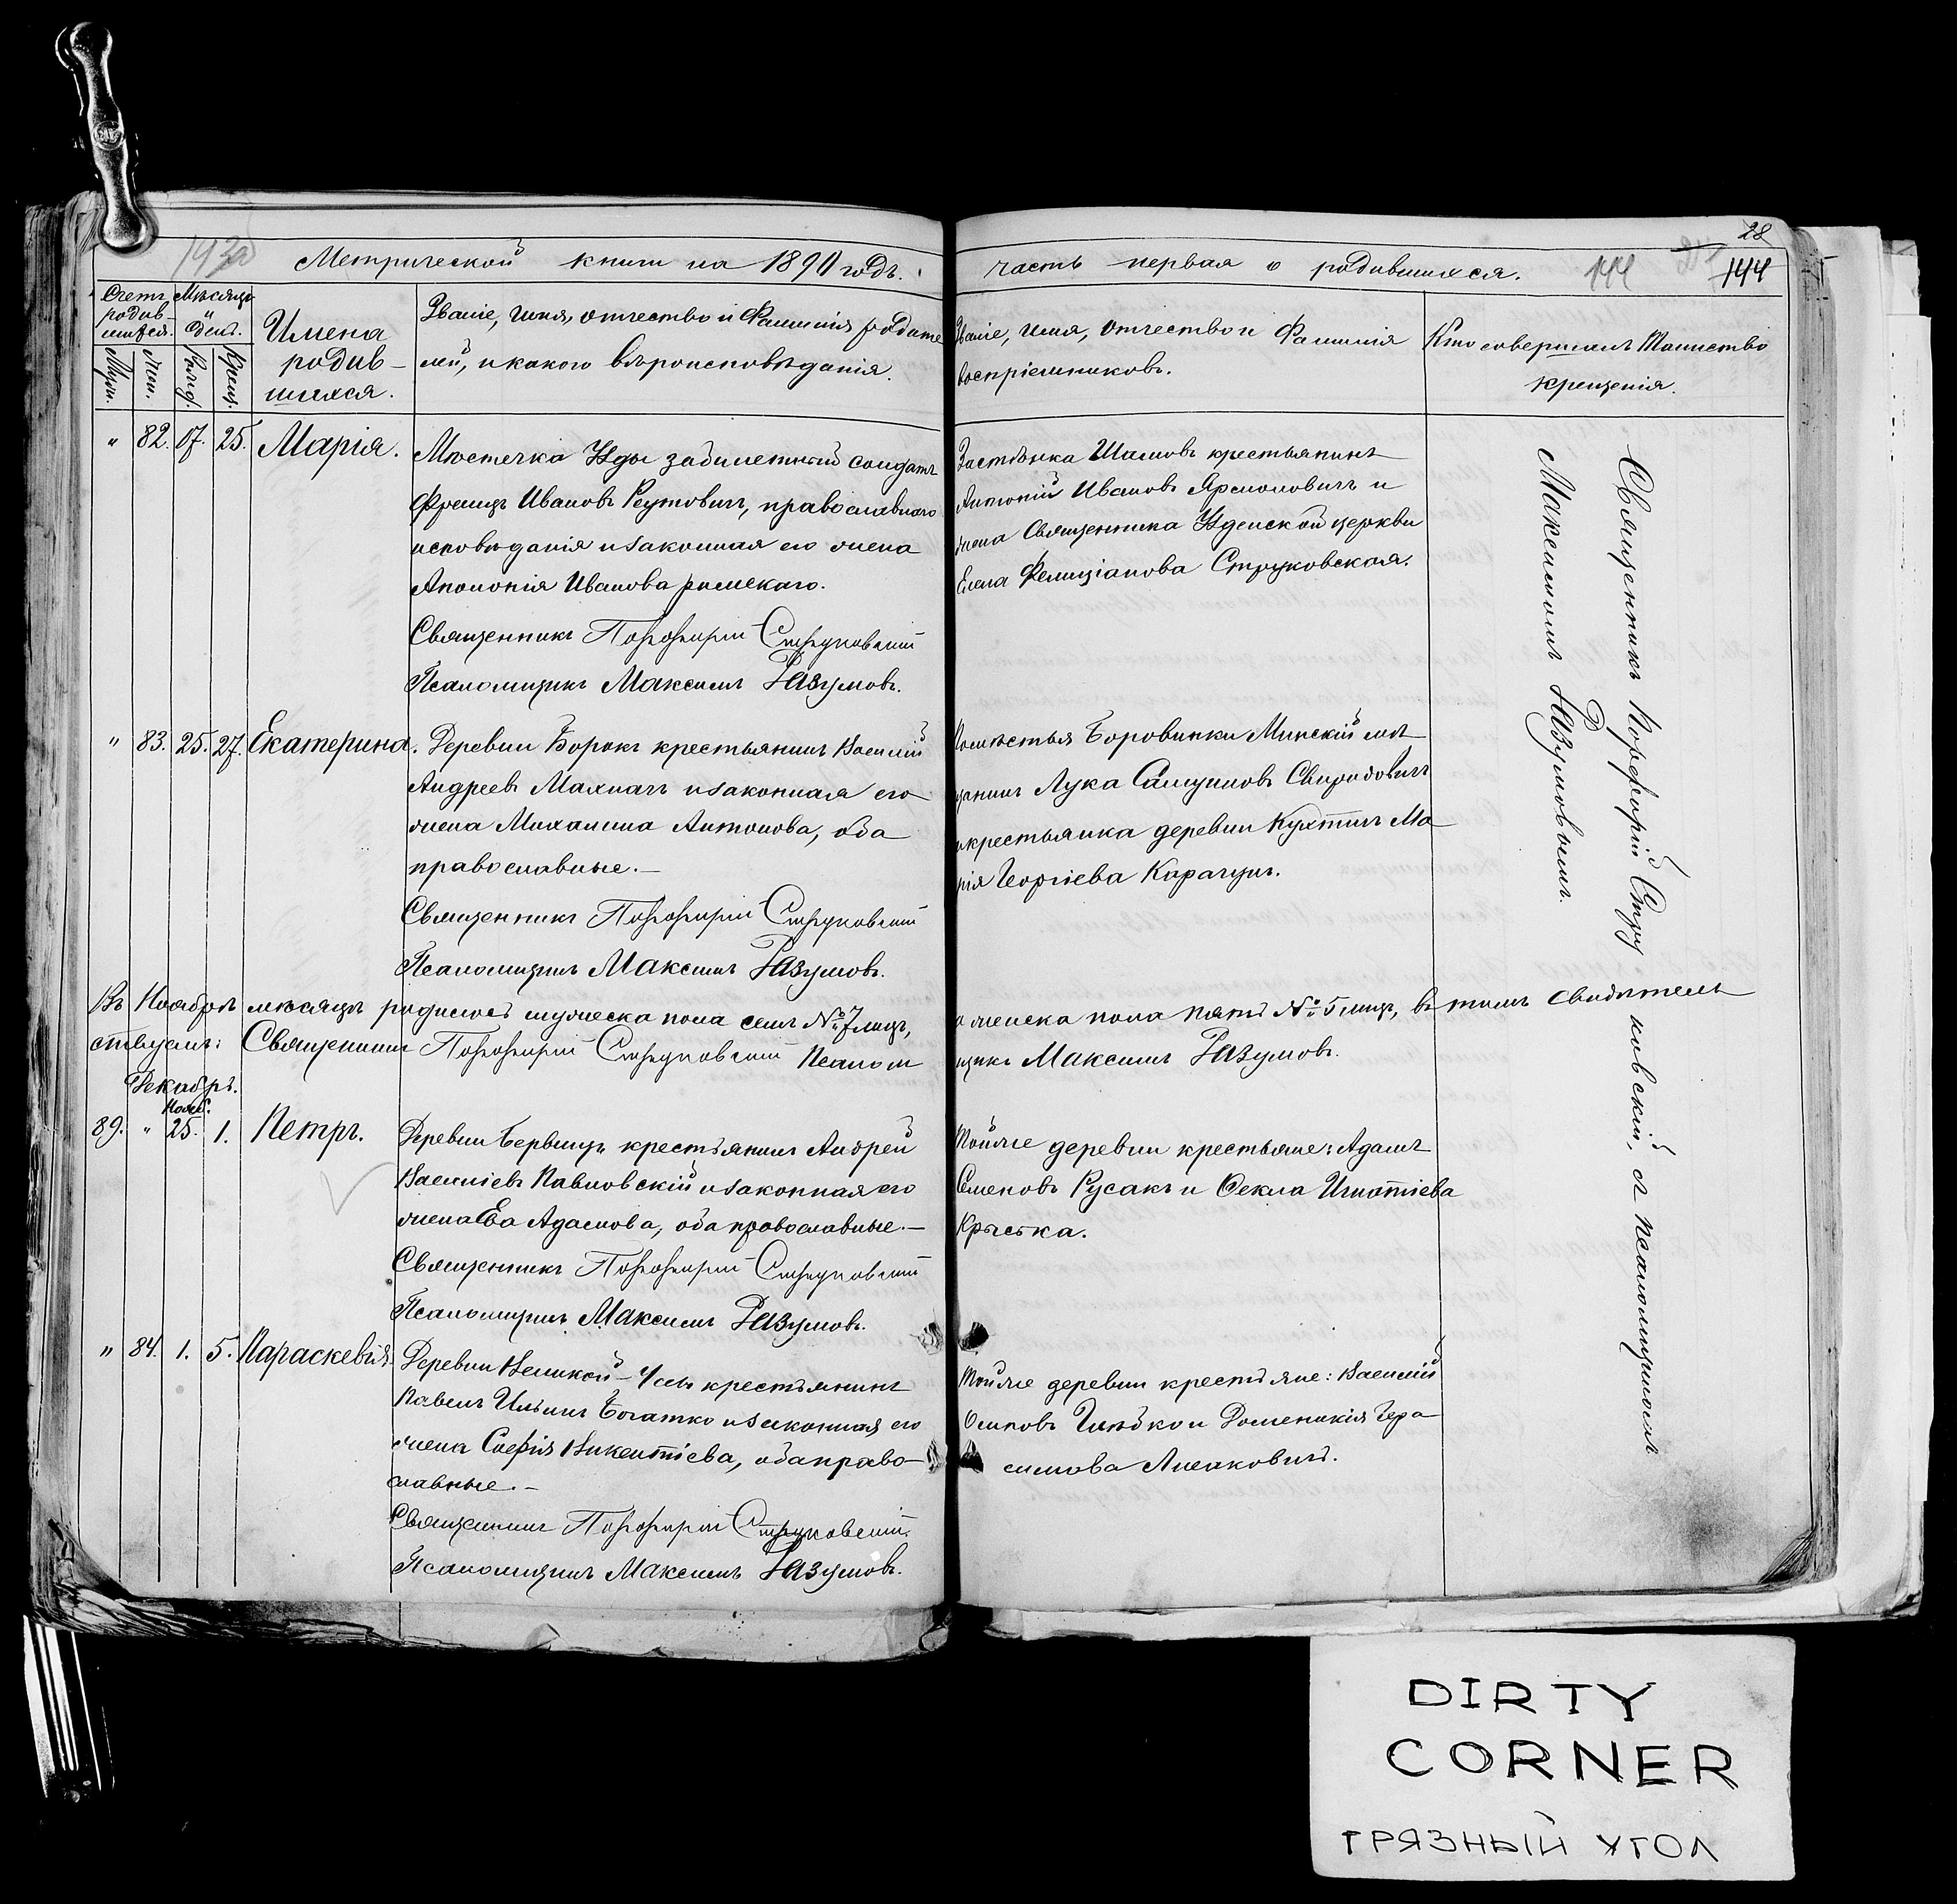 28
Метрической книги на 1890 годъ.
часть первая о родившихся.
144
144
Счетъ родив-шихся.
Мѣсяцъ и день.
Муж.
Жен.
Рожд.
Крещ.
Имена
родив-
шихся.
Званіе, имя, отчество и Фамилія родите
лей, и какого вѣроисповѣданія.
Званіе, имя, отчество и Фамилія
воспріемниковъ.
Кто совершалъ Таинство
крещенія.
" 82. 17. 25. Марія.
Мѣстечка Узды забилетный солдатъ
Францъ Ивановъ Реутовичъ, православнаго
исповѣданія и законная его жена
Аполонія Иванова римскаго.
Священникъ Порфирій Струковскій
Псаломщикъ Максимъ Разумовъ.
Застѣнка Шашовъ крестьянинъ
Антоній Ивановъ Ярмоловичъ и
жена Священника Узденской церкви
Елена Фелиціанова Струковская.
" 83. 25. 27. Екатерина.
Деревни Борокъ крестьянинъ Василій
Андреевъ Махначъ и законная его
жена Михалина Антонова, оба
православные.—
Священникъ Порфирій Струковскій
Псаломщикъ Максимъ Разумовъ.
Помѣстья Боровинки Минскій мѣ
щанинъ Лука Самуиловъ Свиридовичъ
и крестьянка деревни Кухтичъ Ма
рія Георгіева Карачунъ.
Въ Ноябрѣ мѣсяцѣ родилось мужеска пола семь № 7 лицъ,
а женска пола пять № 5 лицъ, въ томъ свидѣтель
ствуемъ: Священникъ Порфирій Струковскій Псалом
щикъ Максимъ Разумовъ.
Декабрь.
Нояб.
89. " 25. 1. Петръ.
Деревни Бервищъ крестьянинъ Андрей
Василіевъ Павловскій и законная его
жена Ева Адамова, оба православные.—
Священникъ Порфирій Струковскій
Псаломщикъ Максимъ Разумовъ.
Тойже деревни крестьяне: Адамъ
Семеновъ Русакъ и Ѳекла Игнатіева
Крыська.
" 84. 1. 5. Параскевія.
Деревни Великой-Усы крестьянинъ
Павелъ Ильинъ Богатко и законная его
жена Софія Викентіева, оба право-
славные.—
Священникъ Порфирій Струковскій.
Псаломщикъ Максимъ Разумовъ.
Тойже деревни крестьяне: Василій
Осиповъ и Доменикія Гера
симова Лисаковичъ.
Священникъ Порфирій Струковскій, съ псаломщикомъ
Максимомъ Разумовымъ.
DIRTY
CORNER
ГРЯЗНЫЙ УГОЛ